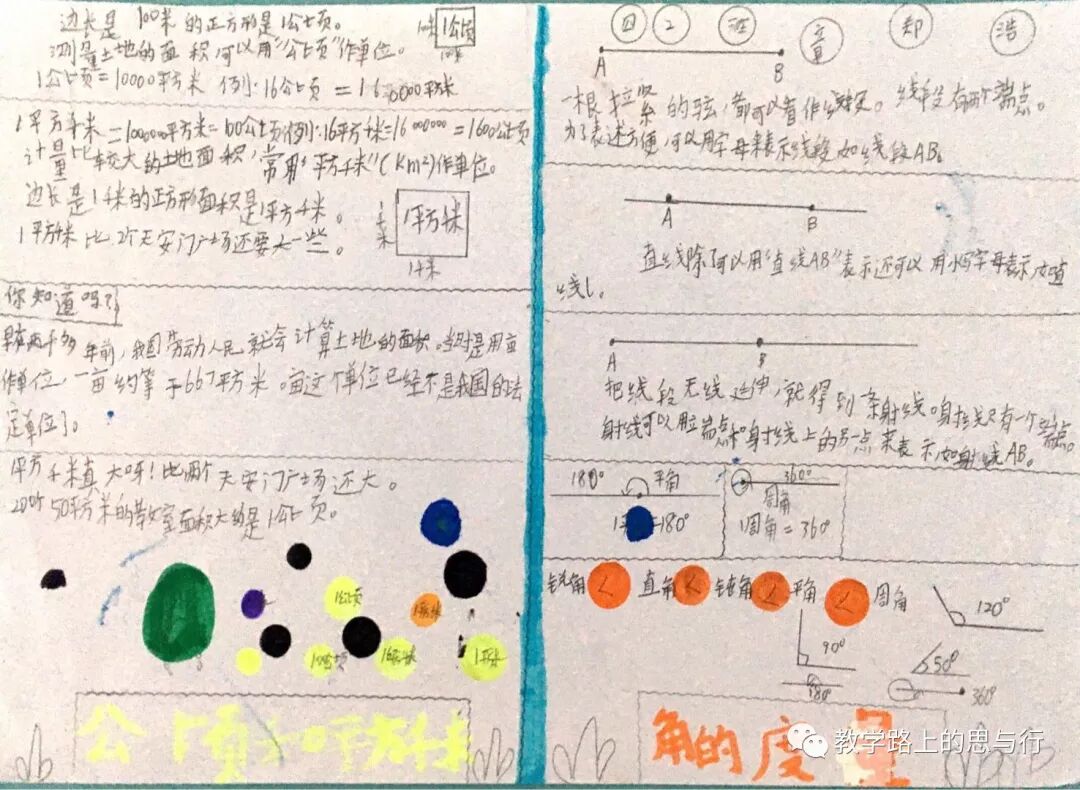 边长是100米的正方形是1公顷。
100米
1公顷
100米
测量土地的面积,可以用“公顷”作单位。
1公顷=10000平方米 例:16公顷=160000平方米
1平方千米=1000000平方米=100公顷 例:16平方千米=16000000=1600公顷
计量比较大的土地面积,常用“平方千米”(km²)作单位。
边长是1千米的正方形面积是1平方千米。
1平方千米比2个天安门广场还要大一些。
1千米
1平方千米
1千米
你知道吗?
早在两千多年前,我国劳动人民就会计算土地的面积。当时是用亩
作单位,一亩约等于667平方米。亩这个单位已经不是我国的法
定单位了。
1平方千米真大呀!比两个天安门广场还大。
200个50平方米的教室面积大约是1公顷。
1公顷
公顷和平方千米
四 2 班 童 郑 浩
A B
一根拉紧的弦,都可以看作线段。线段有两个端点。
为了表述方便,可以用字母来表示线段,如线段AB。
A B
直线除了可以用“直线AB”表示还可以用小写字母表示,如直
线l。
A B
把线段无线延伸,就得到一条射线。射线只有一个端点。
射线可以用端点和射线上的另一点来表示,如射线AB。
180° 平角
=180°
360°
周角
1周角=360°
锐角 直角 钝角 平角 周角
120°
90°
50°
180°
360°
角的度量
教学路上的思与行